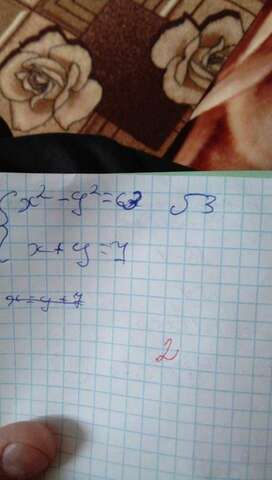 {x² - y² = 63 √3
x + y = 7
x = y + 7
2